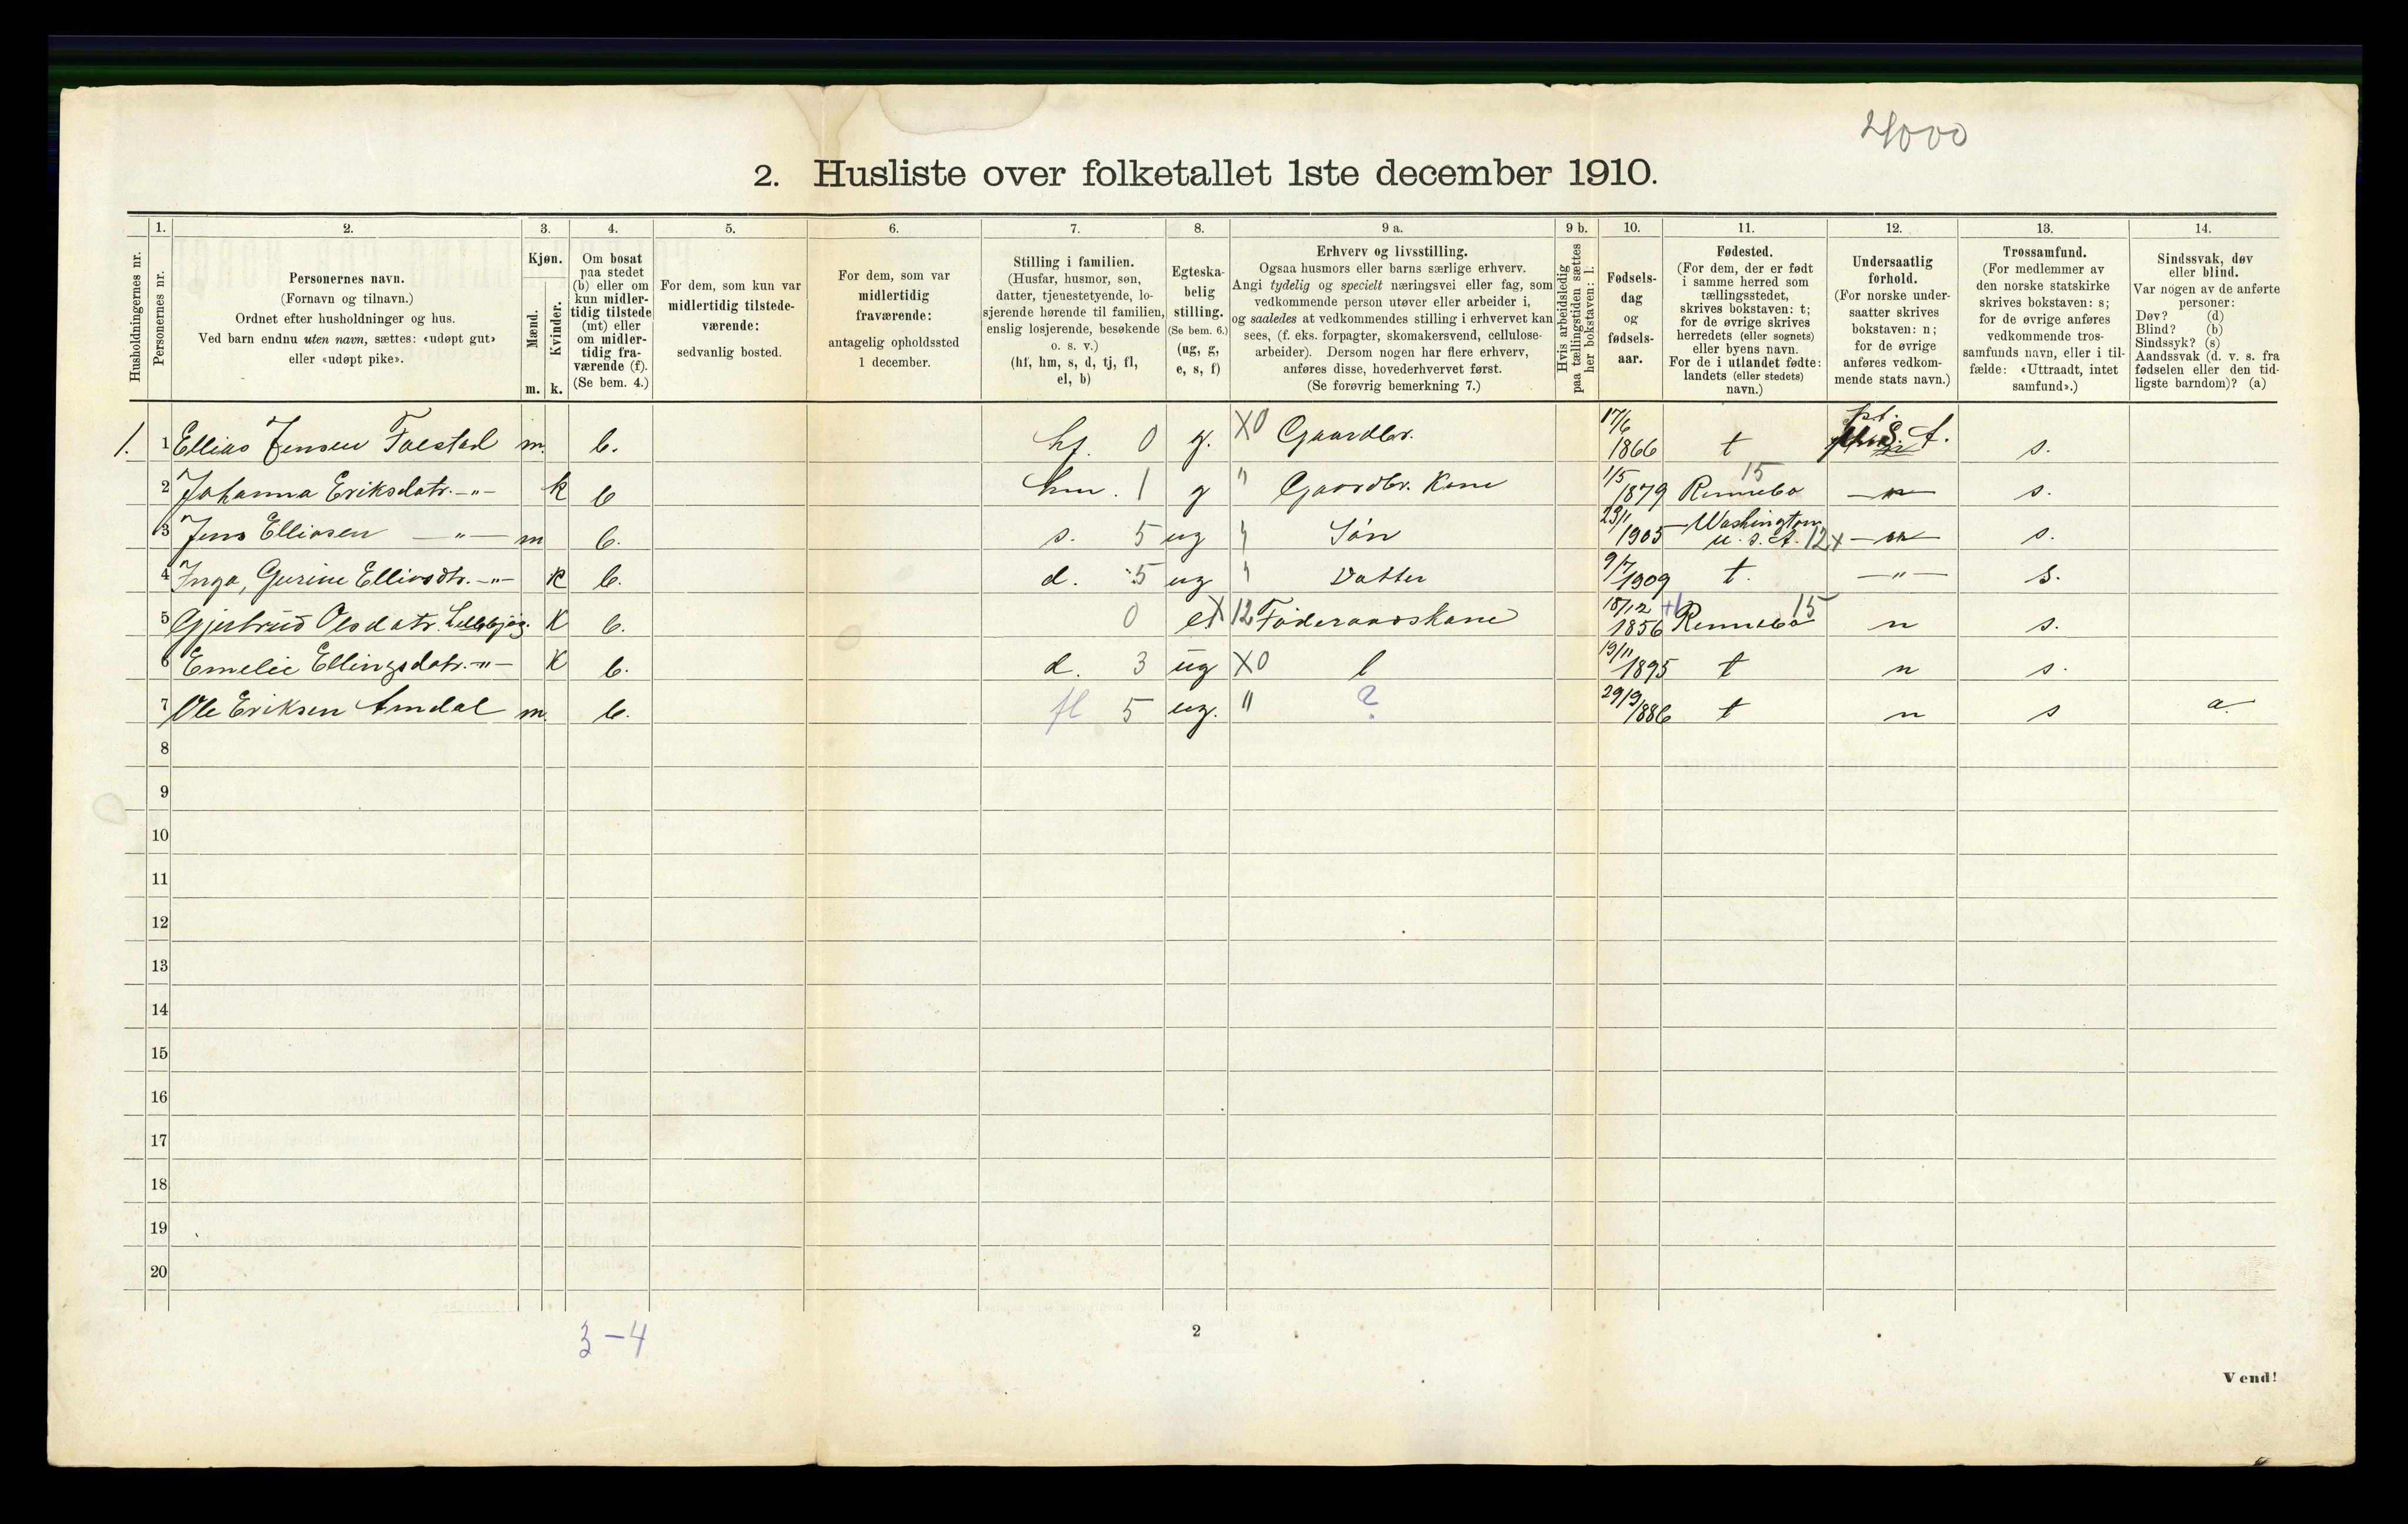 4000
2. Husliste over folketallet 1ste december 1910.
Husholdningernes nr.
1.
Personernes nr.
2.
Personernes navn.
(Fornavn og tilnavn.)
Ordnet efter husholdninger og hus.
Ved barn endnu uten navn, sættes: «udøpt gut»
eller «udøpt pike».
3.
Kjøn.
Mænd.
Kvinder.
m. k.
4.
Om bosat
paa stedet
(b) eller om
kun midler-
tidig tilstede
(mt) eller
om midler-
tidig fra-
værende (f).
(Se bem. 4.)
5.
For dem, som kun var
midlertidig tilstede-
værende:
sedvanlig bosted.
6.
For dem, som var
midlertidig
fraværende:
antagelig opholdssted
1 december.
7.
Stilling i familien.
(Husfar, husmor, søn,
datter, tjenestetyende, lo-
sjerende hørende til familien,
enslig losjerende, besøkende
o. s. v.)
(hf, hm, s, d, tj, fl,
el, b)
8.
Egteska-
belig
stilling.
(Se bem. 6.)
(ug, g,
e, s, f)
9 a.
Erhverv og livsstilling.
Ogsaa husmors eller barns særlige erhverv.
Angi tydelig og specielt næringsvei eller fag, som
vedkommende person utøver eller arbeider i,
og saaledes at vedkommendes stilling i erhvervet kan
sees, (f. eks. forpagter, skomakersvend, cellulose-
arbeider). Dersom nogen har flere erhverv,
anføres disse, hovederhvervet først.
(Se forøvrig bemerkning 7.)
9 b.
Hvis arbeidsledig
paa tællingstiden sættes
her bokstaven: l.
10.
Fødsels-
dag
og
fødsels-
aar.
11.
Fødested.
(For dem, der er født
i samme herred som
tællingsstedet,
skrives bokstaven: t;
for de øvrige skrives
herredets (eller sognets)
eller byens navn.
For de i utlandet fødte:
landets (eller stedets)
navn.)
12.
Undersaatlig
forhold.
(For norske under-
saatter skrives
bokstaven: n;
for de øvrige
anføres vedkom-
mende stats navn.)
13.
Trossamfund.
(For medlemmer av
den norske statskirke
skrives bokstaven: s;
for de øvrige anføres
vedkommende tros-
samfunds navn, eller i til-
fælde: «Uttraadt, intet
samfund».)
14.
Sindssvak, døv
eller blind.
Var nogen av de anførte
personer:
Døv? (d)
Blind? (b)
Sindssyk? (s)
Aandssvak (d. v. s. fra
fødselen eller den tid-
ligste barndom)? (a)
1. 1 Ellias Jensen m. b. hf. 0 g. X0 Gaardbr. 17/6 1866 t s.
2 Johanna Eriksdatr. -"- k b hm. 1 g " Gaardbr. Kone 1/5 1879 Rennebo 15 s.
3 Jens Elliasen -"- m b. s. 5 ug " Søn 23/1 1905 Washington U. S. A. 12x s.
4 Inga, Gurine Elliasdtr. -"- k b. d. 5 ug " Datter 9/7 1909 t. -"- s.
5 Gjertrud Olsdatr. k b. 0 e X 12 Føderaadskone 18/12 1856 Rennebo 15 n s.
6 Emelie Ellingsdatr. -"- k b. d. 3 ug X0 l 19/11 1895 t n s.
7 Ole Eriksen Amdal m. b. fl 5 ug. " ? 29/9 1886 t n s a.
8
9
10
11
12
13
14
15
16
17
18
19
20
3-4
2
Vend!